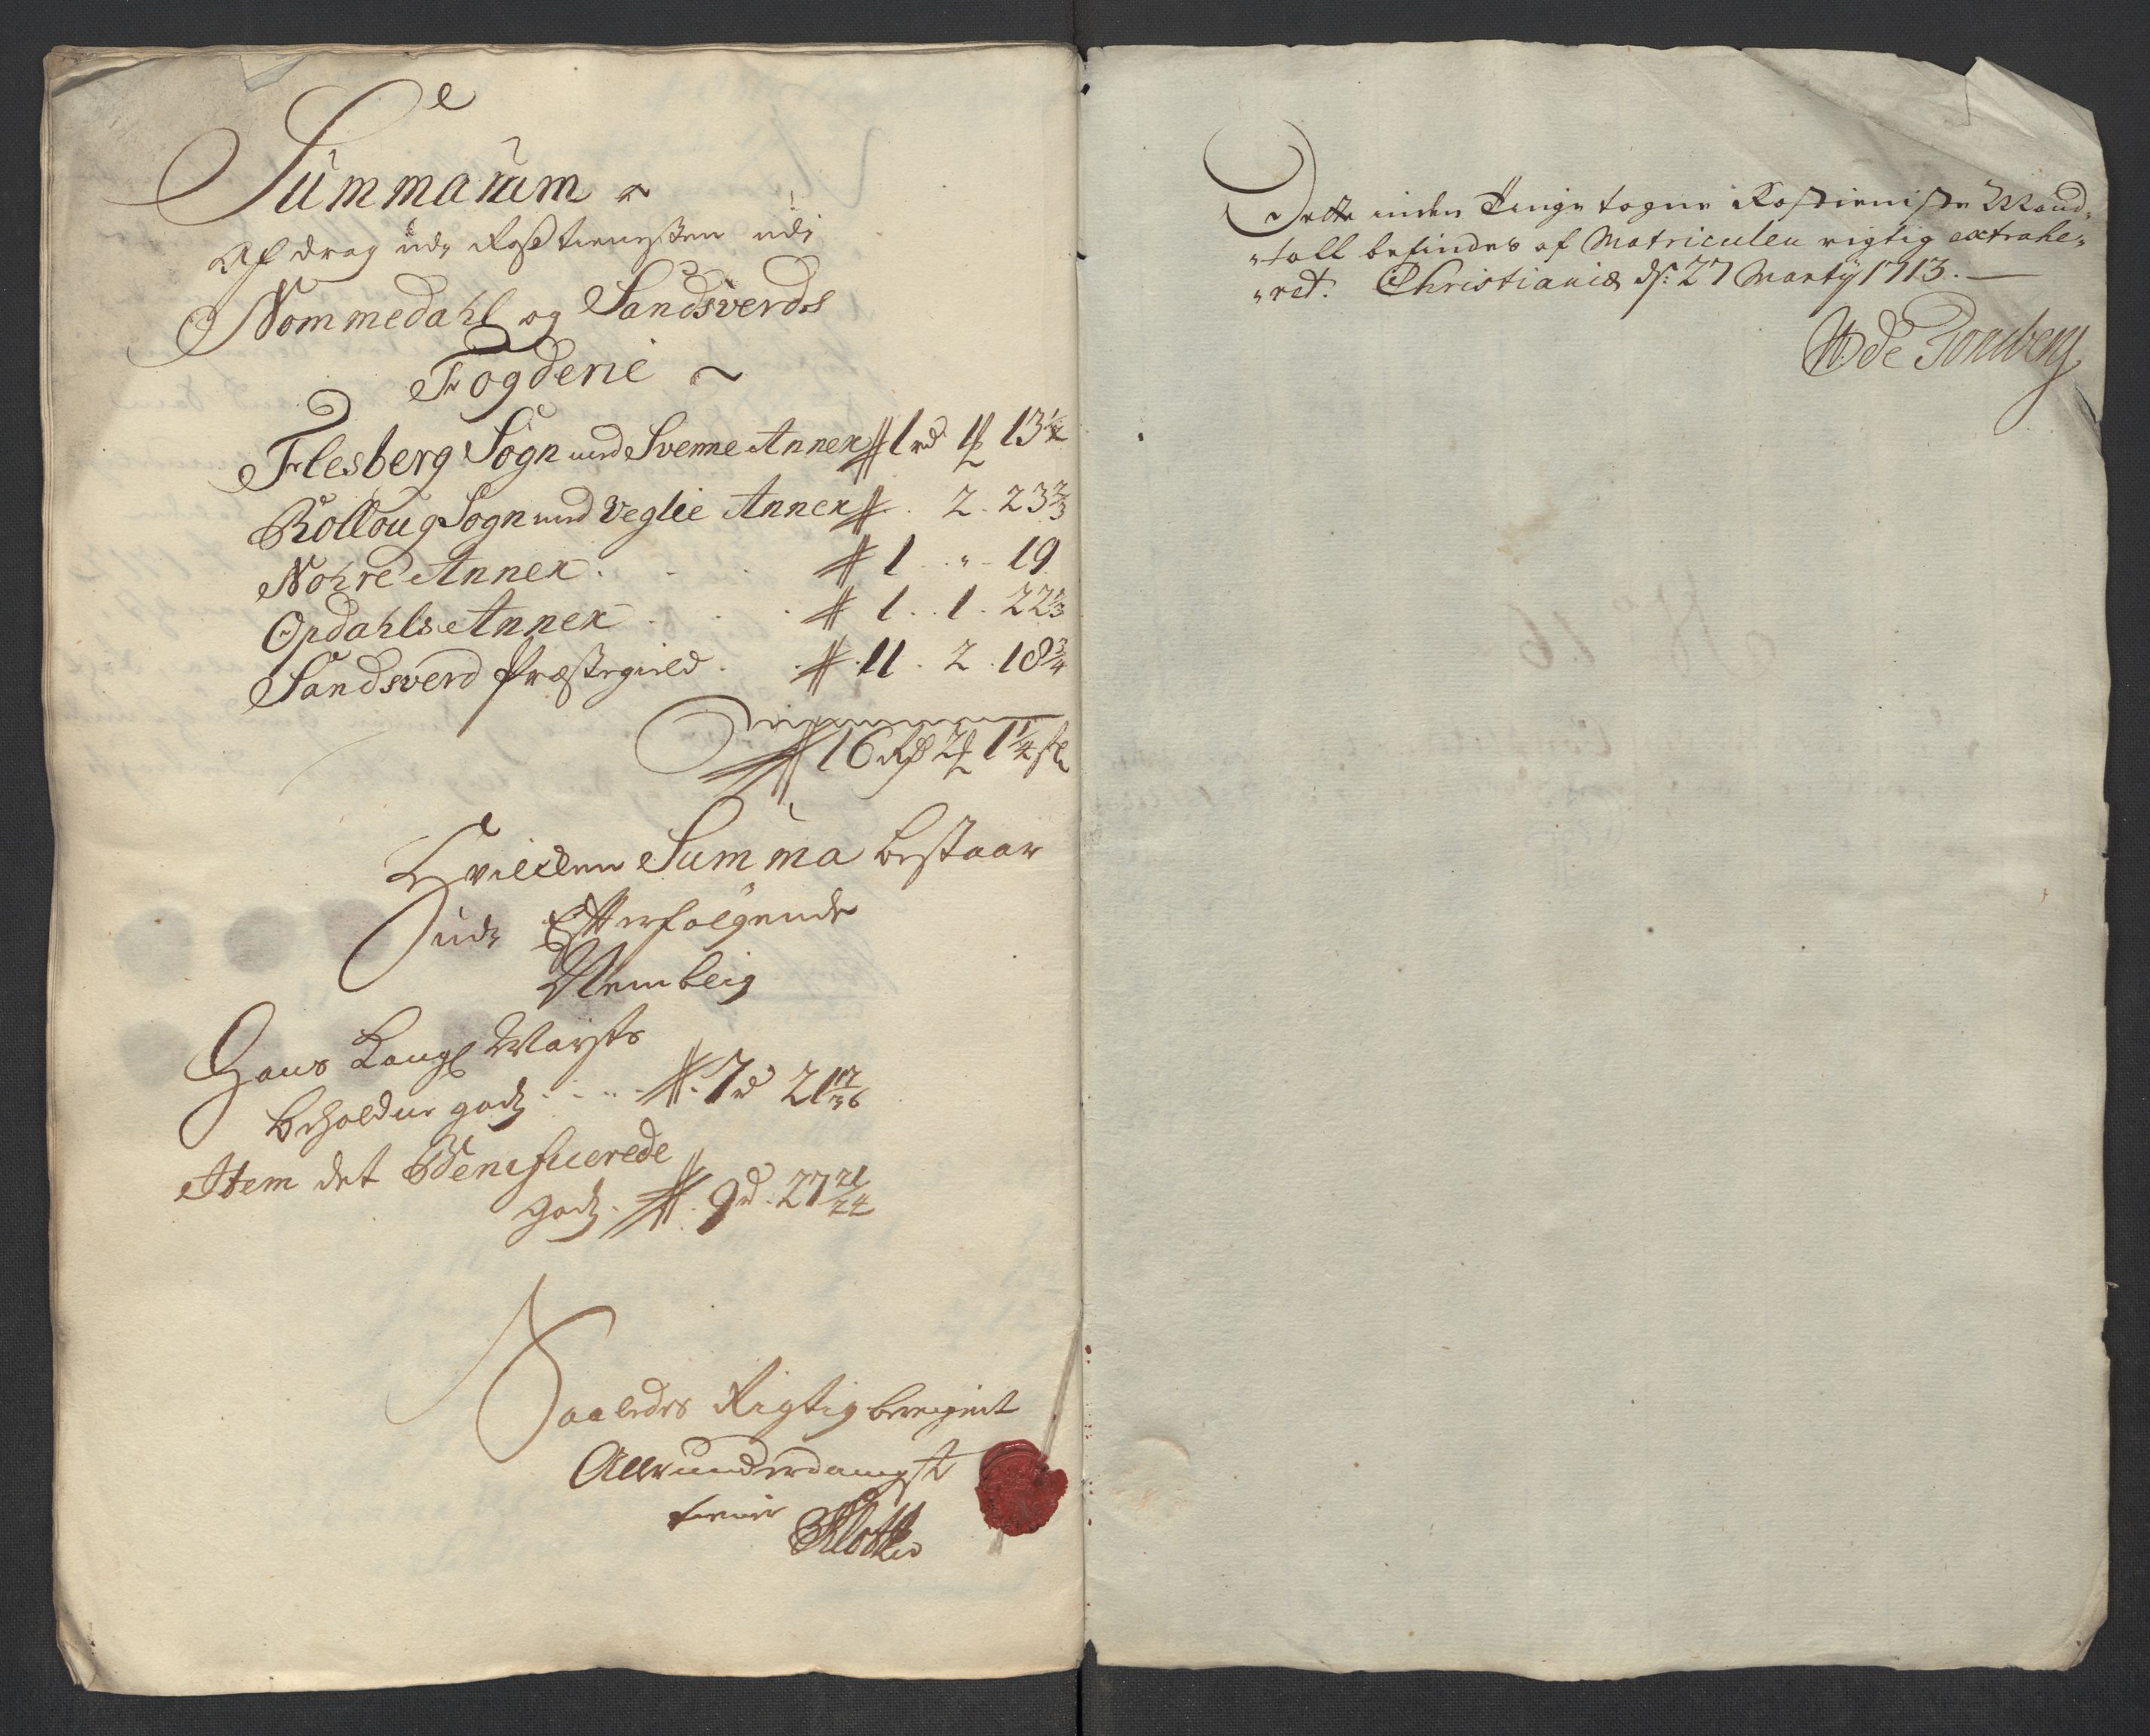 Summarum
Afdrag udj Rostienesten udi
Nommedahl og Sandsverds
Fogderie
Flesberg Sogn med Svenne Annex 1 rd 1 ꝑ 13 1/4
Rolloug Sogn med Veglie Annex . 2 . 23 2/3
Nohre Annex . . . 1 . „ - 19
Opdahls Annex . . . 1 . . 1 . 22 1/3
Sandsverd Præstegield . . 11 . 2 . 18 3/4
16 Rd 2 1 1/4 sk
Hvilcken Summa bestaar
udj Efterfølgende
Nemblig
Hans Kongl Maysts
beholdne godz . . . . 7 rd 21 17/36
Item det Benificerede
godz . 9 rd . 27 21/24
Saaledes Rigtig beregnit
Allerunderdanigst
Dette inden Tingetagne Rostieniste Mand„
„tall befindes af Matriculen rigtig extrahe„
„ret. Christiania ds: 27 Martÿ 1713.
N° 16